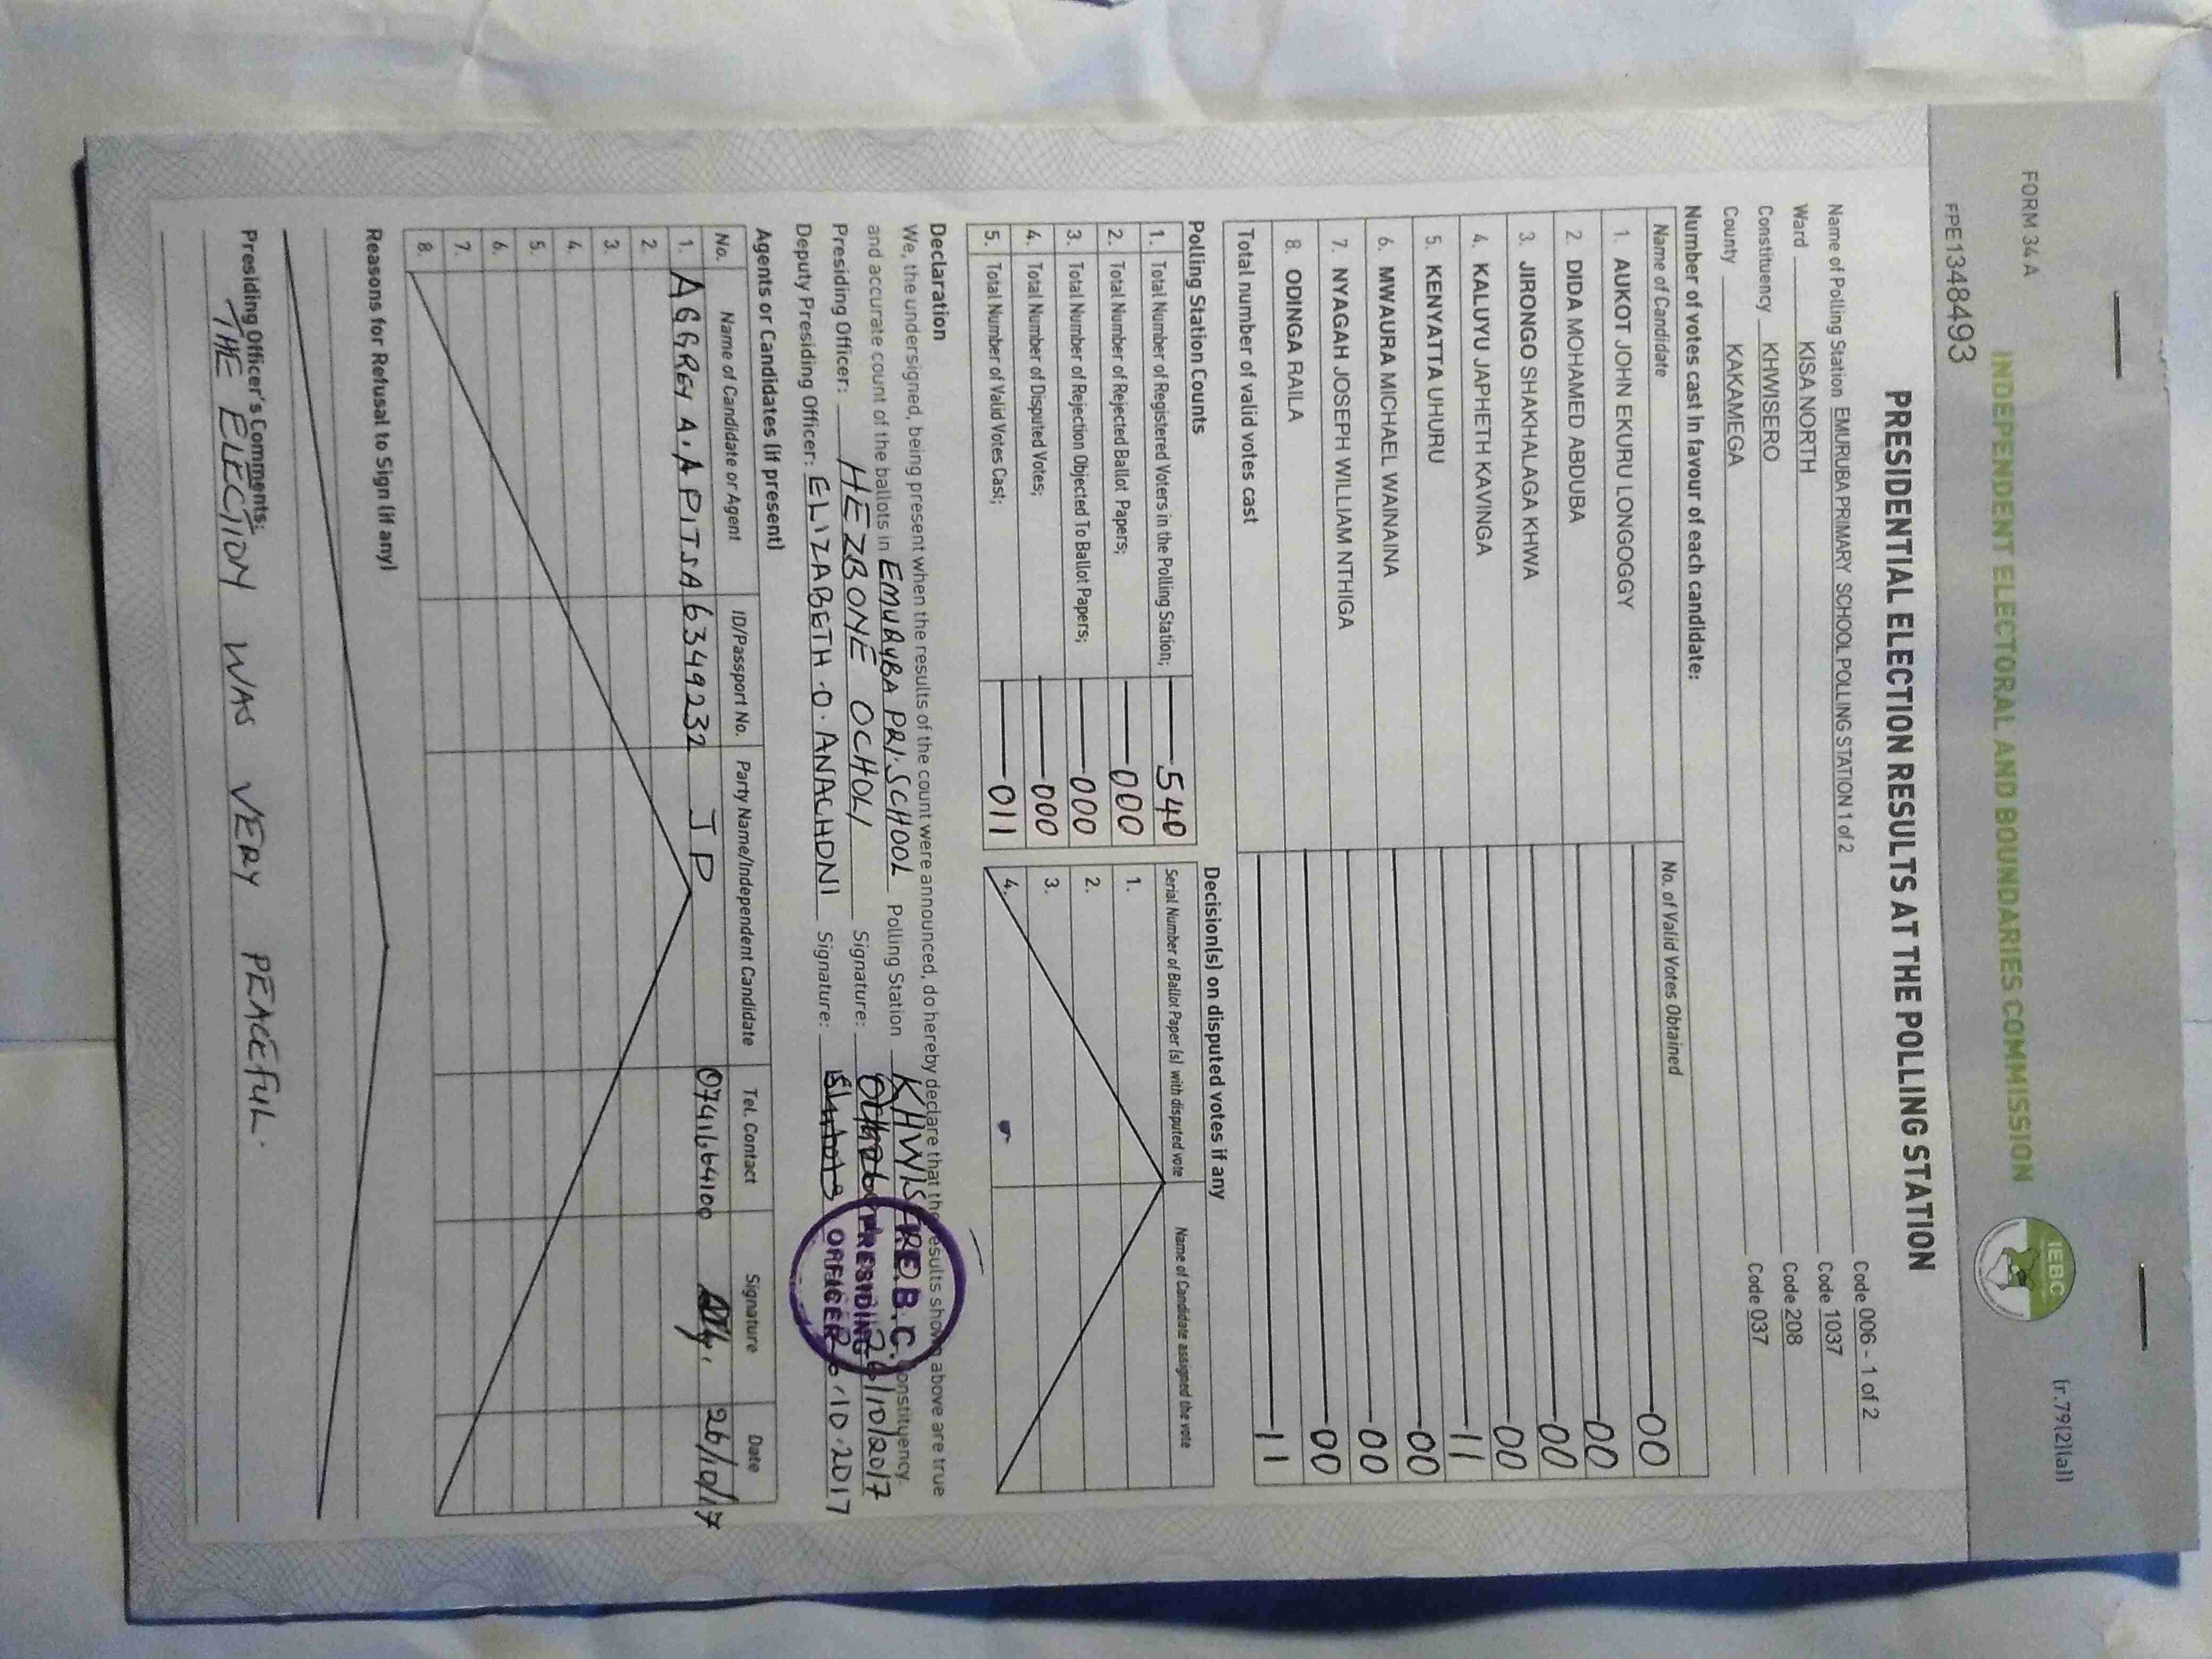 FORM 34 A
(r.79(2)(a))
INDEPENDENT ELECTORAL AND BOUNDARIES COMMISSION
IEBC
FPE1348493
PRESIDENTIAL ELECTION RESULTS AT THE POLLING STATION
Name of Polling Station EMURUBA PRIMARY SCHOOL POLLING STATION 1 of 2 Code 006 - 1 of 2
Ward KISA NORTH Code 1037
Constituency KHWISERO Code 208
County KAKAMEGA Code 037
Number of votes cast in favour of each candidate:
Name of Candidate No. of Valid Votes Obtained
1. AUKOT JOHN EKURU LONGOGGY 00
2. DIDA MOHAMED ABDUBA 00
3. JIRONGO SHAKHALAGA KHWA 00
4. KALUYU JAPHETH KAVINGA 00
5. KENYATTA UHURU 11
6. MWAURA MICHAEL WAINAINA 00
7. NYAGAH JOSEPH WILLIAM NTHIGA 00
8. ODINGA RAILA 00
Total number of valid votes cast 11
Polling Station Counts
1. Total Number of Registered Voters in the Polling Station; 540
2. Total Number of Rejected Ballot Papers; 000
3. Total Number of Rejection Objected To Ballot Papers; 000
4. Total Number of Disputed Votes; 000
5. Total Number of Valid Votes Cast; 011
Decision(s) on disputed votes if any
Serial Number of Ballot Paper (s) with disputed vote Name of Candidate assigned the vote
1.
2.
3.
4.
Declaration
We, the undersigned, being present when the results of the count were announced, do hereby declare that the results shown above are true
and accurate count of the ballots in EMURUBA PRI. SCHOOL Polling Station KHWISERO Constituency.
Presiding Officer: HEZBONE OCHOLI Signature: 26/10/2017
Deputy Presiding Officer: ELIZABETH .O. ANACHONI Signature: 26.10.2017
I.E.B.C.
PRESIDING
OFFICER
Agents or Candidates (if present)
No. Name of Candidate or Agent ID/Passport No. Party Name/Independent Candidate Tel. Contact Signature Date
1. AGGREY A. APITSA 6349232 JP 0741664100 26/10/17
2.
3.
4.
5.
6.
7.
8.
Reasons for Refusal to Sign (if any)
Presiding Officer's Comments:
THE ELECTION WAS VERY PEACEFUL.